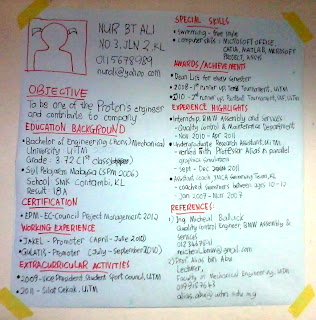 NUR BT ALI
NO 3, JLN 2, KL
0115678989
nurali@yahoo.com
OBJECTIVE
To be one of the Proton's engineer
and contribute to company.
EDUCATION BACKGROUND
• Bachelor of Engineering (Hons) Mechanical
University : UiTM
Grade : 3.72 (1st class)
• Sijil Pelajaran Malaysia (SPM 2006)
School : SMK Contambi, KL
Result : 18 A
CERTIFICATION
• EPM - EC-Council Project Management 2012
WORKING EXPERIENCE
• JAKEL - Promoter (April - June 2010)
• GULATIS - Promoter (July - September 2010)
EXTRACURRICULAR ACTIVITIES
• 2009 - Vice President Student Sport Council, UiTM
• 2011 - Silat Cekak, UiTM
SPECIAL SKILLS
• Swimming - free style
• Computer skills : MICROSOFT OFFICE,
CATIA, MATLAB, MICROSOFT
PROJECT, ANSYS
AWARDS / ACHIEVEMENTS
• Dean Lists for every semester
• 2008 - 1st runner up Tennis Tournament, UiTM
• 2010 - 2nd runner up Football Tournament, UiTM
EXPERIENCE HIGHLIGHTS
• Internship, BMW Assembly and Services
- Quality Control & Maintenance Department
- Nov 2010 - Apr
• Undergraduate Research Assistant, UiTM
- worked with Professor Alias in parallel
graphics simulations
- Sept - Dec 2011
• Assistant coach, YMCA Swimming Team, KL
- coached swimmers between ages 10-12
- Jan 2007 - Nov 2007
REFERENCES:
1) Ing. Micheal Ballack
Quality Control Engineer, BMW Assembly &
Services
2) Prof. Alias bin Abu
Lecturer,
Faculty of Mechanical Engineering, UiTM